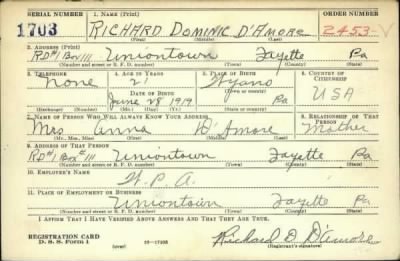 SERIAL NUMBER 1. NAME (Print) ORDER NUMBER
1703 RICHARD DOMINIC D'AMORE 2453-V
(First) (Middle) (Last)
2. ADDRESS (Print)
RD#1 Box 111 Uniontown Fayette Pa
(Number and street or R. F. D. number) (Town) (County) (State)
3. TELEPHONE 4. AGE IN YEARS 5. PLACE OF BIRTH 6. COUNTRY OF CITIZENSHIP
None 21 Wyano USA
DATE OF BIRTH (Town or county)
June 28 1919 Pa
(Exchange) (Number) (Mo.) (Day) (Yr.) (State or country)
7. NAME OF PERSON WHO WILL ALWAYS KNOW YOUR ADDRESS 8. RELATIONSHIP OF THAT PERSON
Mrs Anna D'Amore Mother
(Mr., Mrs., Miss) (First) (Middle) (Last)
9. ADDRESS OF THAT PERSON
RD#1 Box #111 Uniontown Fayette Pa
(Number and street or R. F. D. number) (Town) (County) (State)
10. EMPLOYER'S NAME
W.P.A.
11. PLACE OF EMPLOYMENT OR BUSINESS
Uniontown Fayette Pa
(Number and street or R. F. D. number) (Town) (County) (State)
I AFFIRM THAT I HAVE VERIFIED ABOVE ANSWERS AND THAT THEY ARE TRUE.
REGISTRATION CARD Richard D. D'Amore
D. S. S. Form 1 (over) (Registrant's signature)